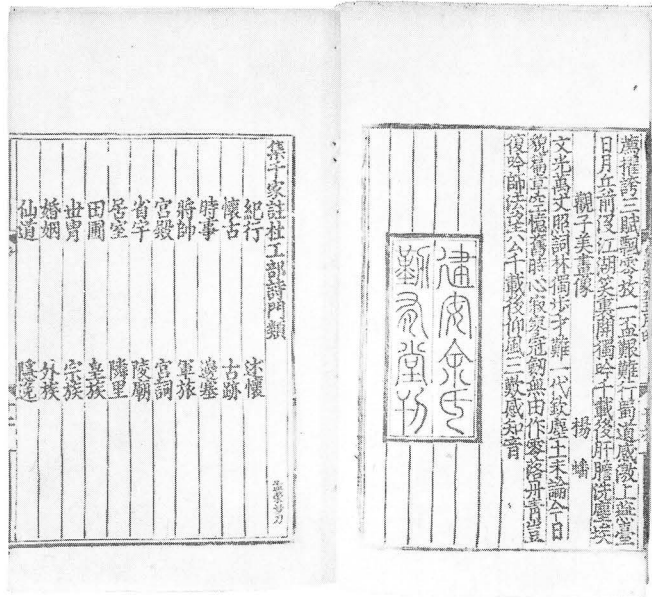 薦摧誇三賦飄零放一盃艱難行蜀道感激上燕臺
日月兵前沒江湖笑裏開獨吟千載後肝膽洗塵埃
觀子美畫像 楊蟠
文光萬丈照詞林獨步才難一代欽塵土未論今日
貌草空憶舊時心寂寥冠劒無由作零落丹青豈
復吟師法望公千載後仰風三歎感知音
建安余氏
勤有堂刊
集千家註杜工部詩門類
紀行 述懷
懷古 古跡
時事 邊塞
將帥 軍旅
宮殿 宮詞
省宇 陵廟
居室 隣里
田圃 皇族
世胄 宗族
婚姻 外族
仙道 隱逸